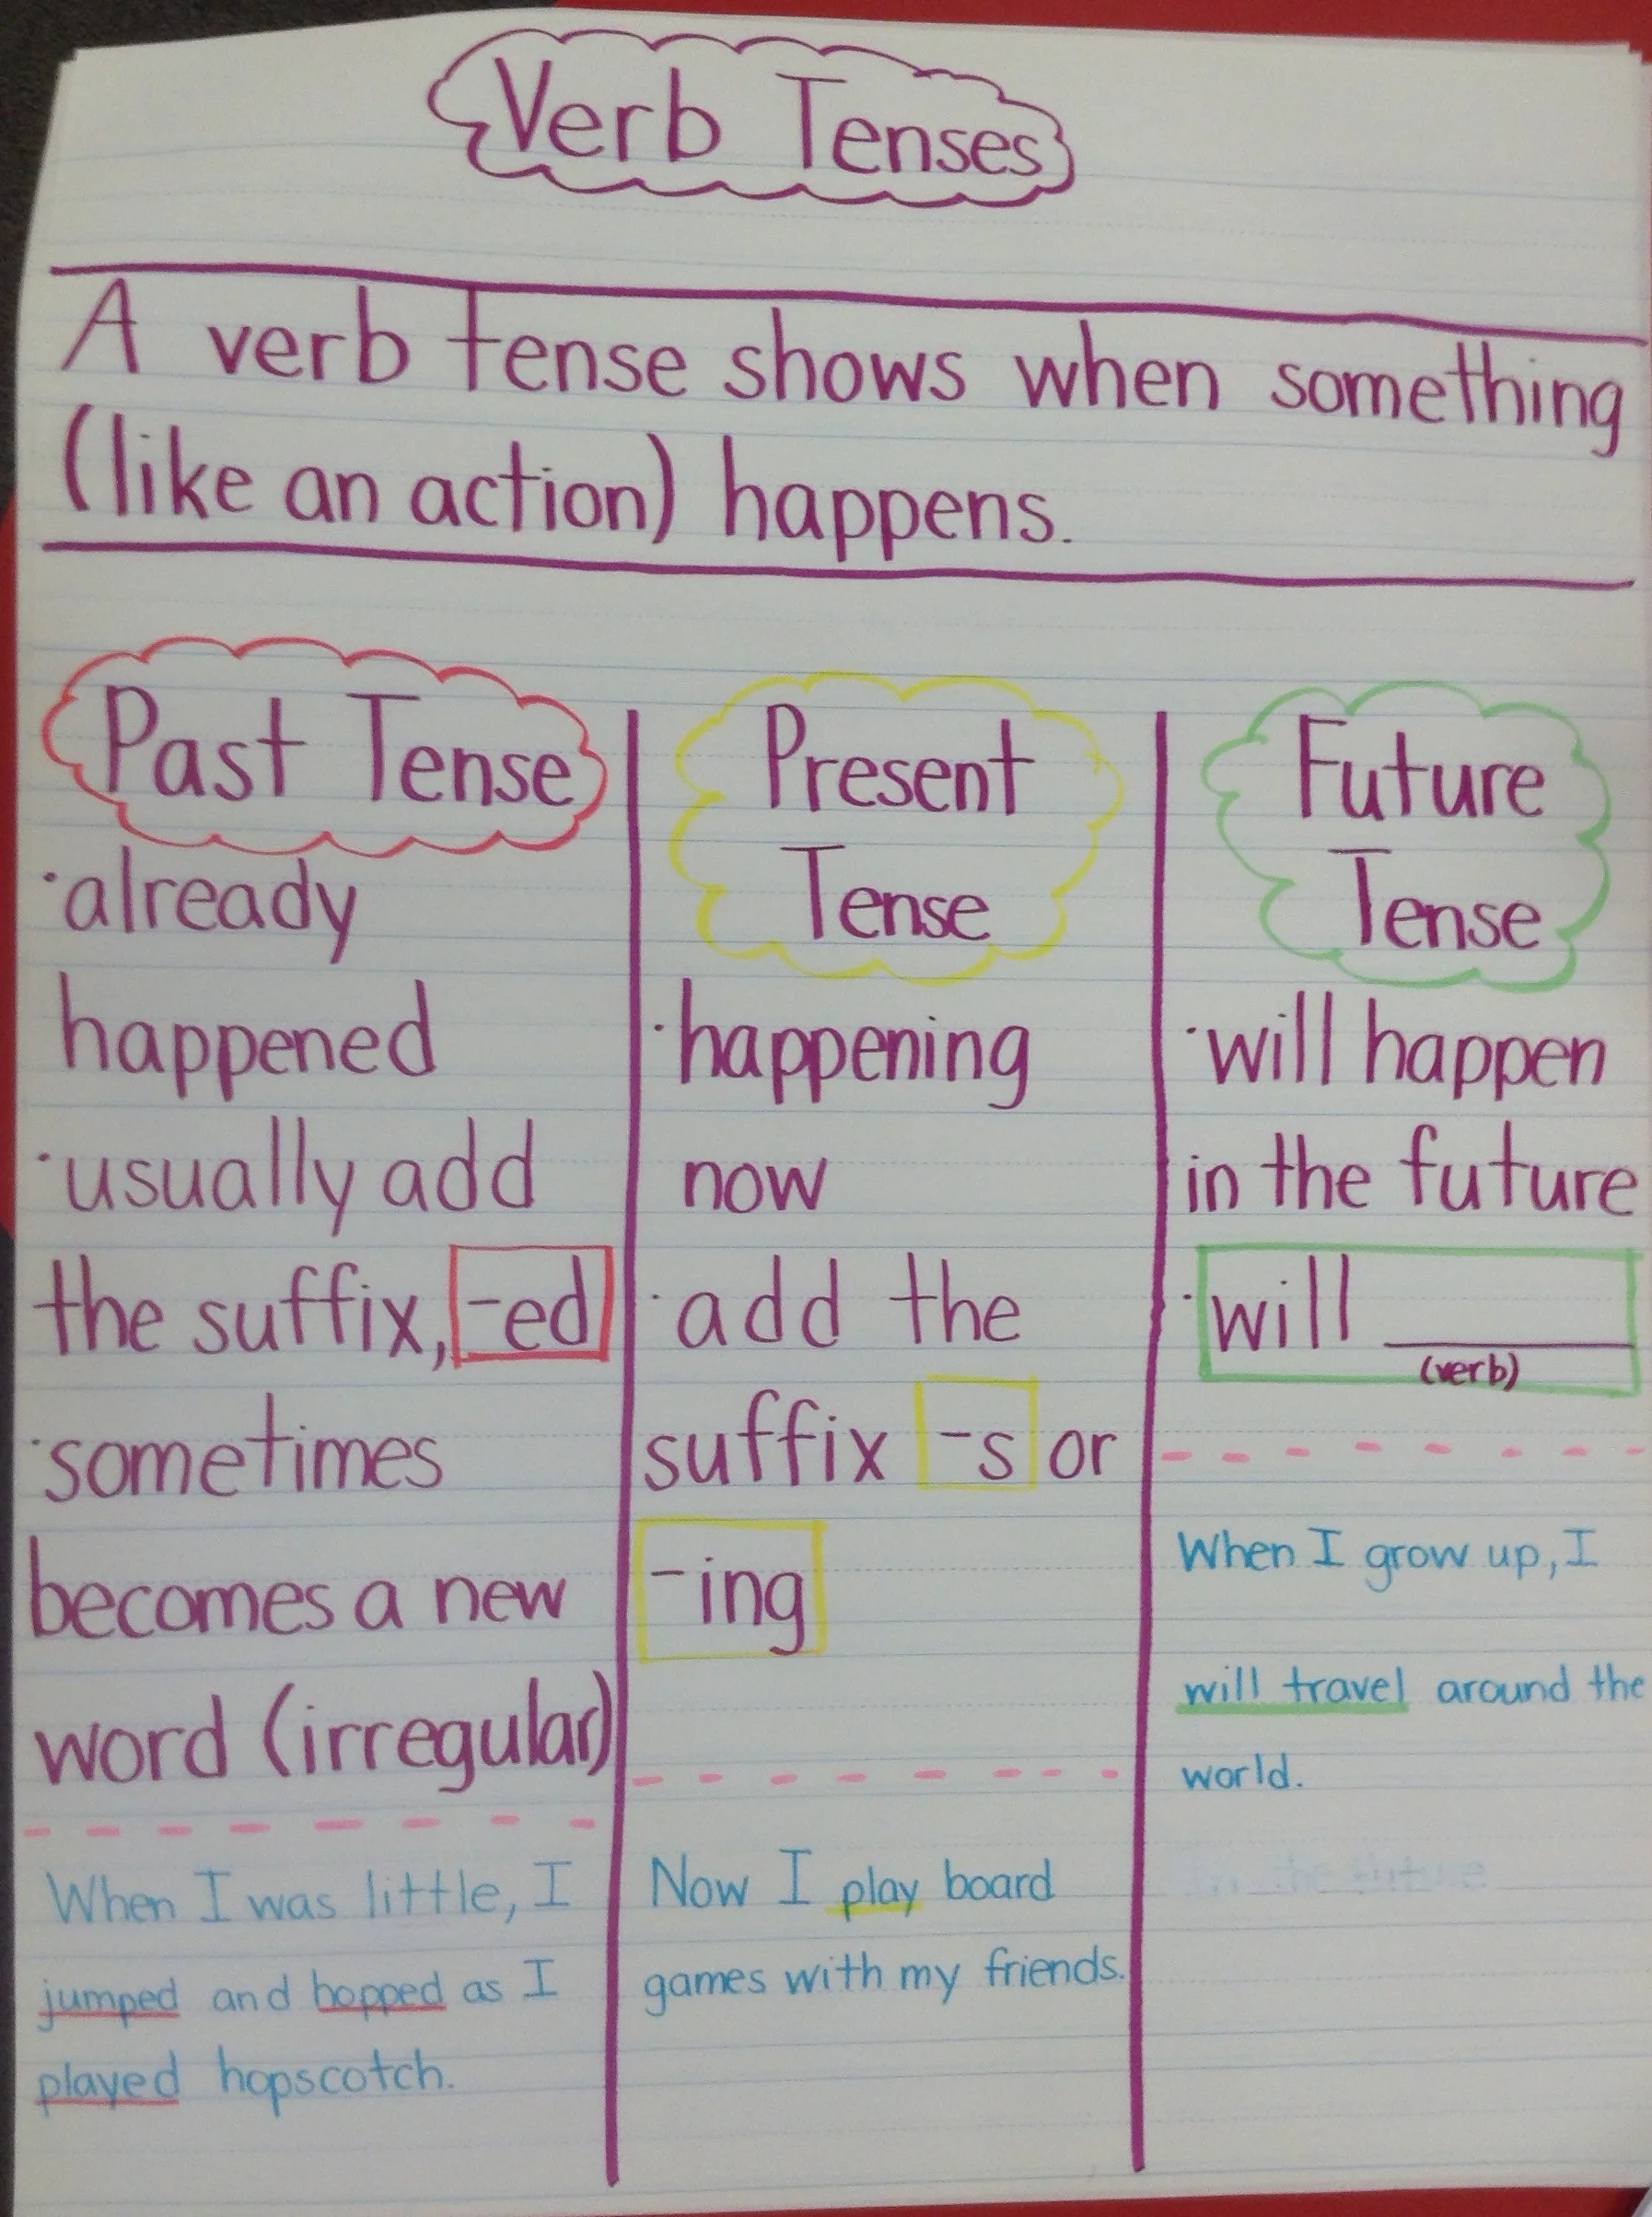 Verb Tenses
A verb tense shows when something
(like an action) happens.
Past Tense
·already
happened
·usually add
the suffix, -ed
·sometimes
becomes a new
word (irregular)
When I was little, I
jumped and hopped as I
played hopscotch.
Present
Tense
·happening
now
·add the
suffix -s or
-ing
Now I play board
games with my friends.
Future
Tense
·will happen
in the future
·will ______
(verb)
When I grow up, I
will travel around the
world.